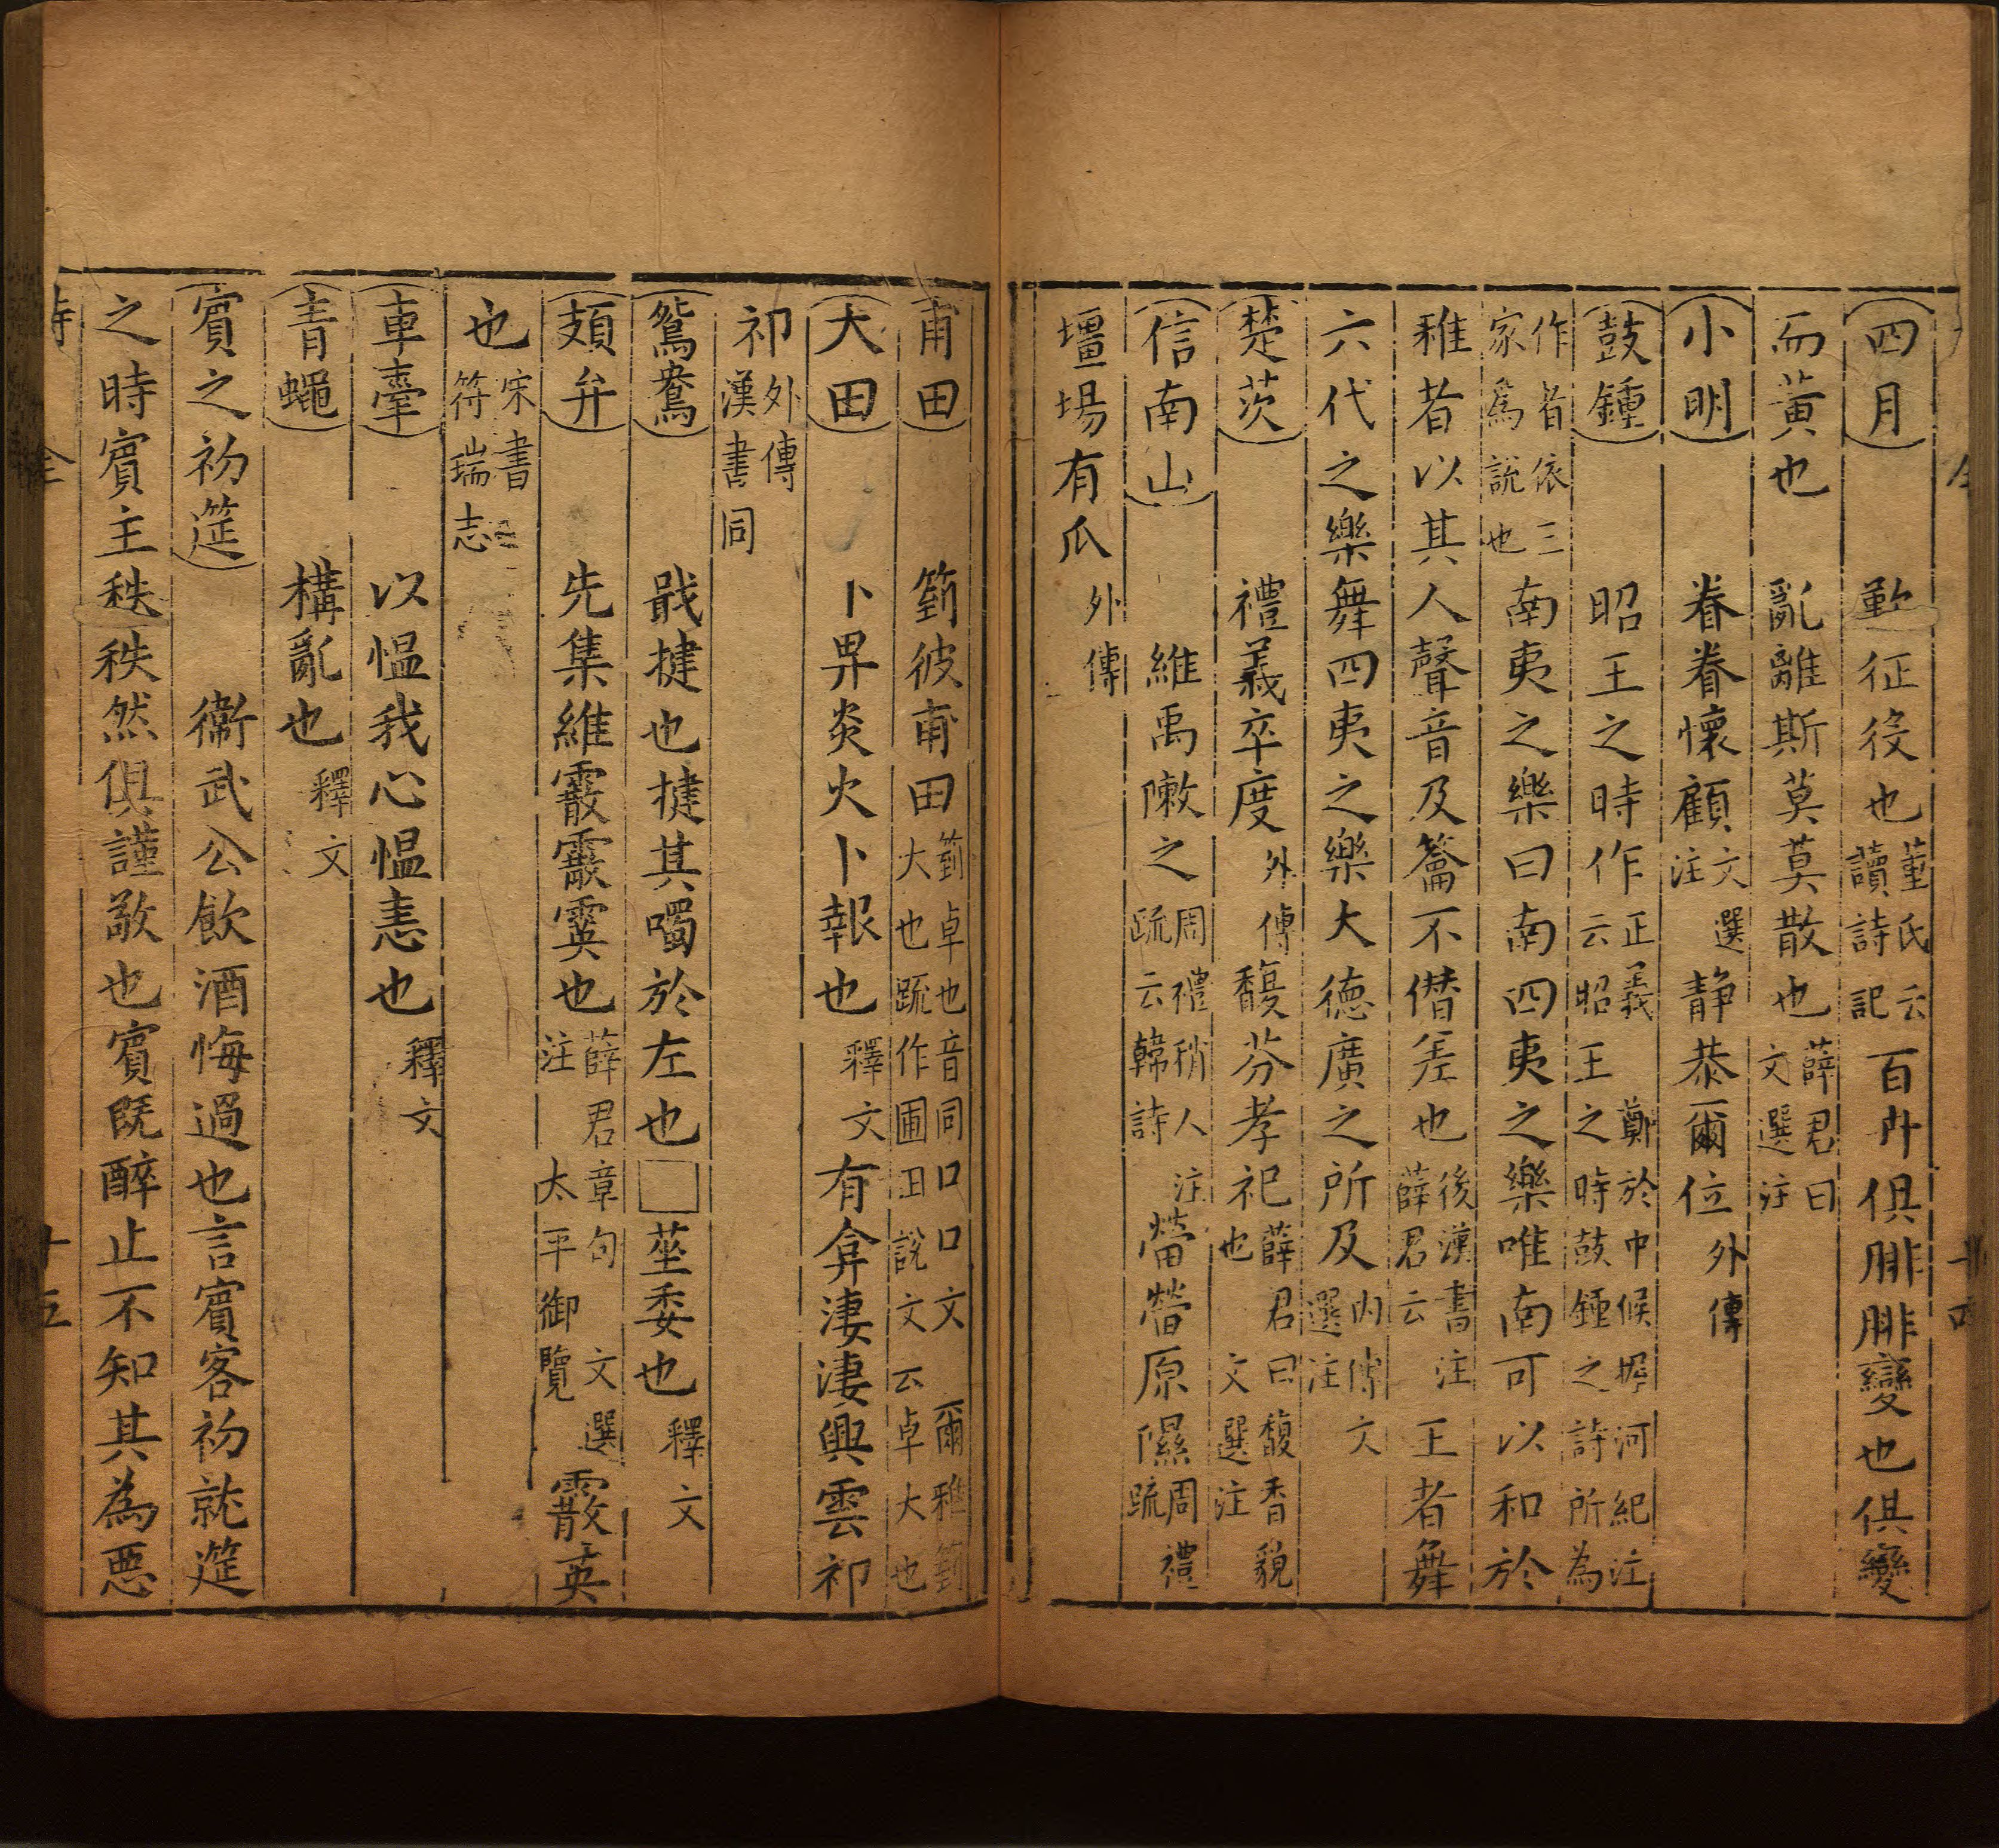 四月　歎征役也董氏云讀詩記百卉俱腓腓變也俱變
而黃也　亂離斯莫莫散也薛君曰文選注
小明　眷眷懷顧文選注靜恭爾位外傳
鼓鍾　昭王之時作正義云昭王之時鄭於中候握河紀注鼓鍾之詩所為
作者依三家爲說也南夷之樂曰南四夷之樂唯南可以和於
雅者以其人聲音及籥不僭差也後漢書注薛君云王者舞
六代之樂舞四夷之樂大德廣之所及內傳文選注
楚茨　禮義卒度外傳馥芬孝祀薛君曰馥香貌也文選注
信南山　維禹敶之周禮稍人注疏云韓詩㽦㽦原隰周禮疏
壃場有瓜外傳
甫田　箌彼甫田箌卓也音同口口文爾雅箌大也疏作圃田說文云卓大也
大田　卜畀炎火卜報也釋文有弇淒淒興雲祁
祁外傳漢書同
鴛鴦　戢揵也揵其噣於左也□莝委也釋文
頍弁　先集維霰霰霙也薛君章句文選注太平御覽霰英
也宋書符瑞志
車舝　以慍我心慍恚也釋文
青蠅　構亂也釋文
賓之初筵　衞武公飲酒悔過也言賓客初就筵
之時賓主秩秩然俱謹敬也賓既醉止不知其為惡
十五